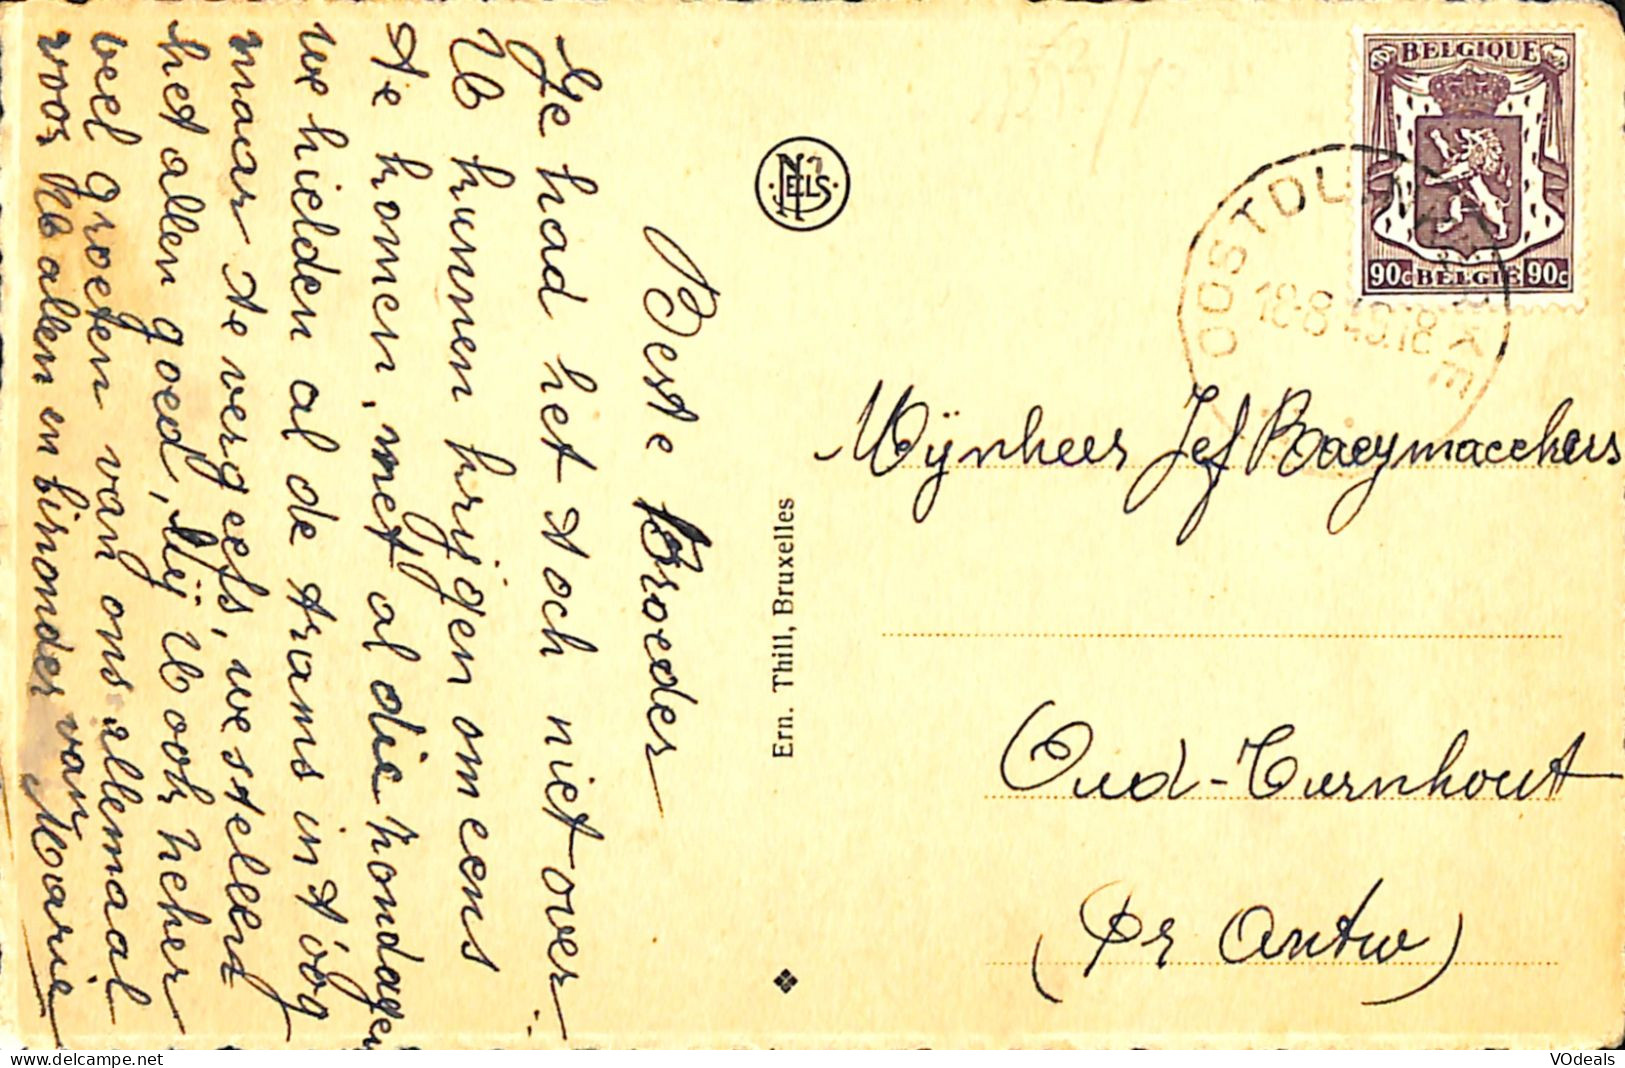 Beste Broeder
Ge had het toch niet over
U kunnen krijgen om eens
te komen, met al die hondagen
we hielden al de trams in 't oog
maar te vergeefs, we stellen
het allen goed, Gij U ook zeker
veel groeten van ons allemaal
voor U allen en bizonder van
Marie
NELS
Ern. Thill, Bruxelles
BELGIQUE
90c BELGIE 90c
OOSTDUINKERKE
18-8 49.18
Mijnheer Jef Raeymaeckers
Oud-Turnhout
(Pr Antw)
VOdeals
https://www.delcampe.net